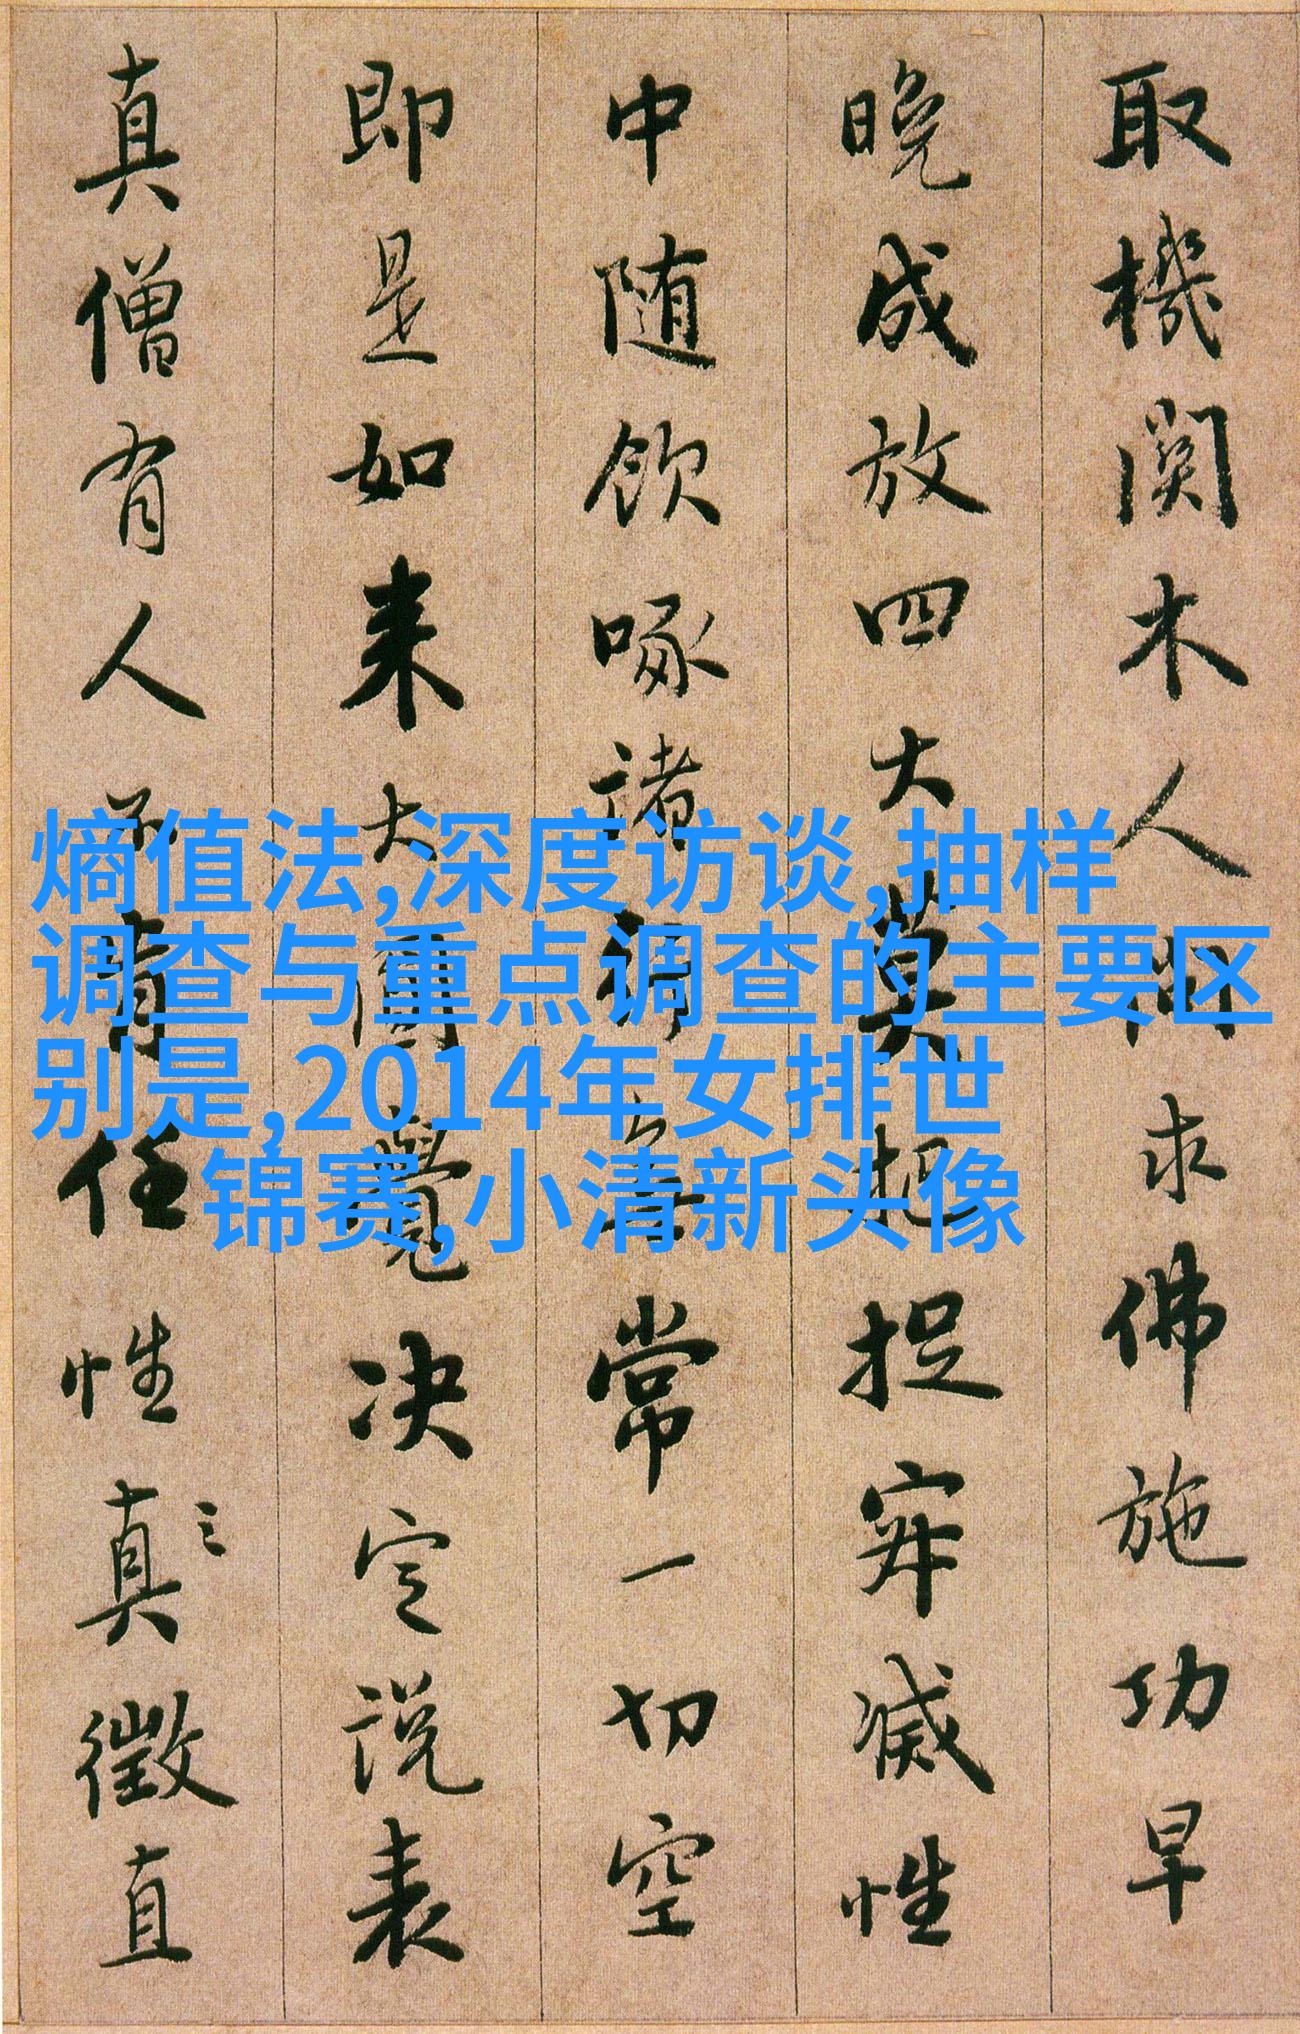 取機関木人問求佛施功早
晚成放四大莫把捉寂滅性
中随飲啄諸行無常一切空
即是如来大圓覺决定說表
真僧有人不肯任性真徵直
熵值法,深度访谈,抽样
调查与重点调查的主要区
别是,2014年女排世
锦赛,小清新头像